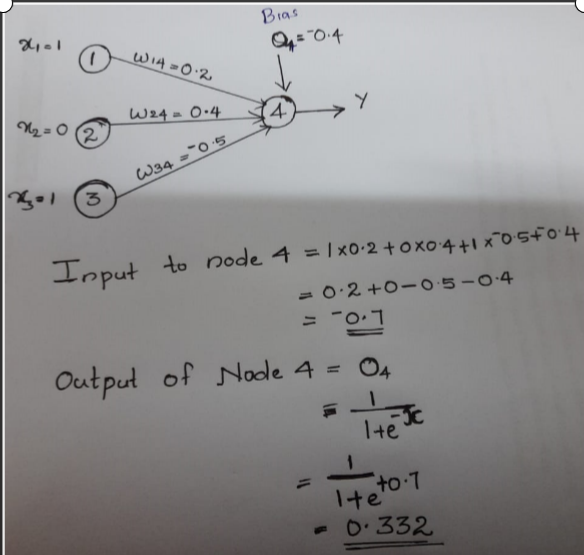 Bias
x₁=1
θ₄=⁻0.4
1
W14=0.2
x₂=0
2
W24= 0.4
4
Y
W34 = ⁻0.5
x₃=1
3
Input to node 4 = 1x0.2+0x0.4+1x⁻0.5+⁻0.4
= 0.2+0-0.5-0.4
= ⁻0.7
Output of Node 4 = O₄
= 1/1+e⁻ˣ
= 1/1+e⁺⁰·⁷
= 0.332